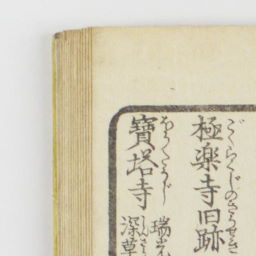 極楽寺旧跡
ごくらくじのきうせき
寳塔寺
ほうたうじ
瑞光
深草